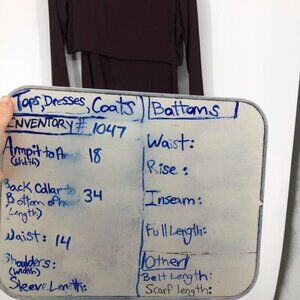 Tops, Dresses, Coats
INVENTORY # 1047
Armpit to
(width)
18
Back Collar to
Bottom of
(Length)
34
Waist: 14
Shoulders:
(width)
Sleeve Length:
Bottoms
Waist:
Rise:
Inseam:
Full Length:
Other
Belt Length:
Scarf length: